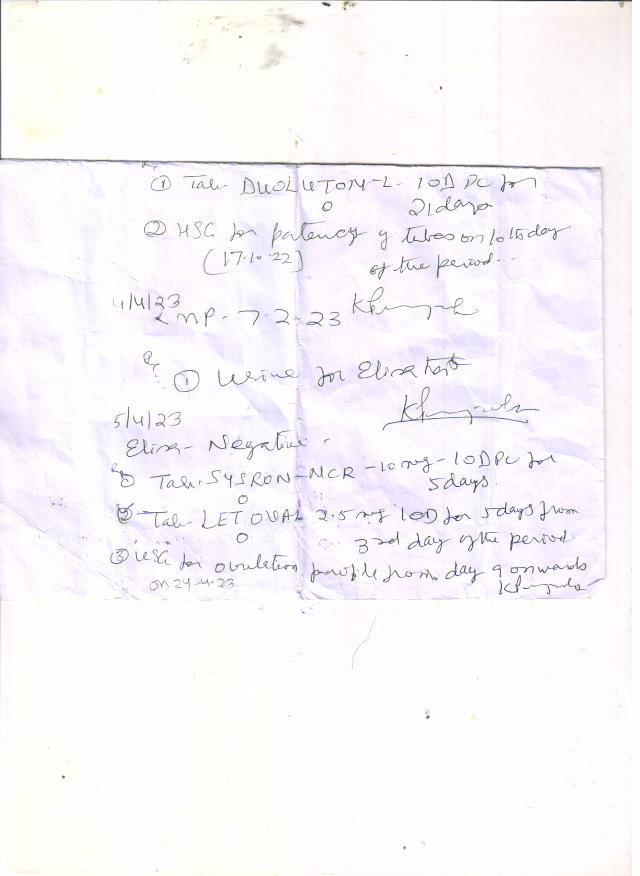 ① Tab. DUOLUTON-L. 1OD PC for
21 days
② HSG for patency of tubes on 10th day
(17.10.22) of the period..
4/4/23
LMP - 7.2.23
Rx
① Urine for Elisa test
5/4/23
Elisa - Negative.
Rx
① Tab. SYSRON-NCR - 10 mg - 1OD PC for
5 days.
② Tab. LETOVAL 2.5 mg 1OD for 5 days from
3rd day of the period
③ USG for ovulation profile from day 9 onwards
on 24.4.23